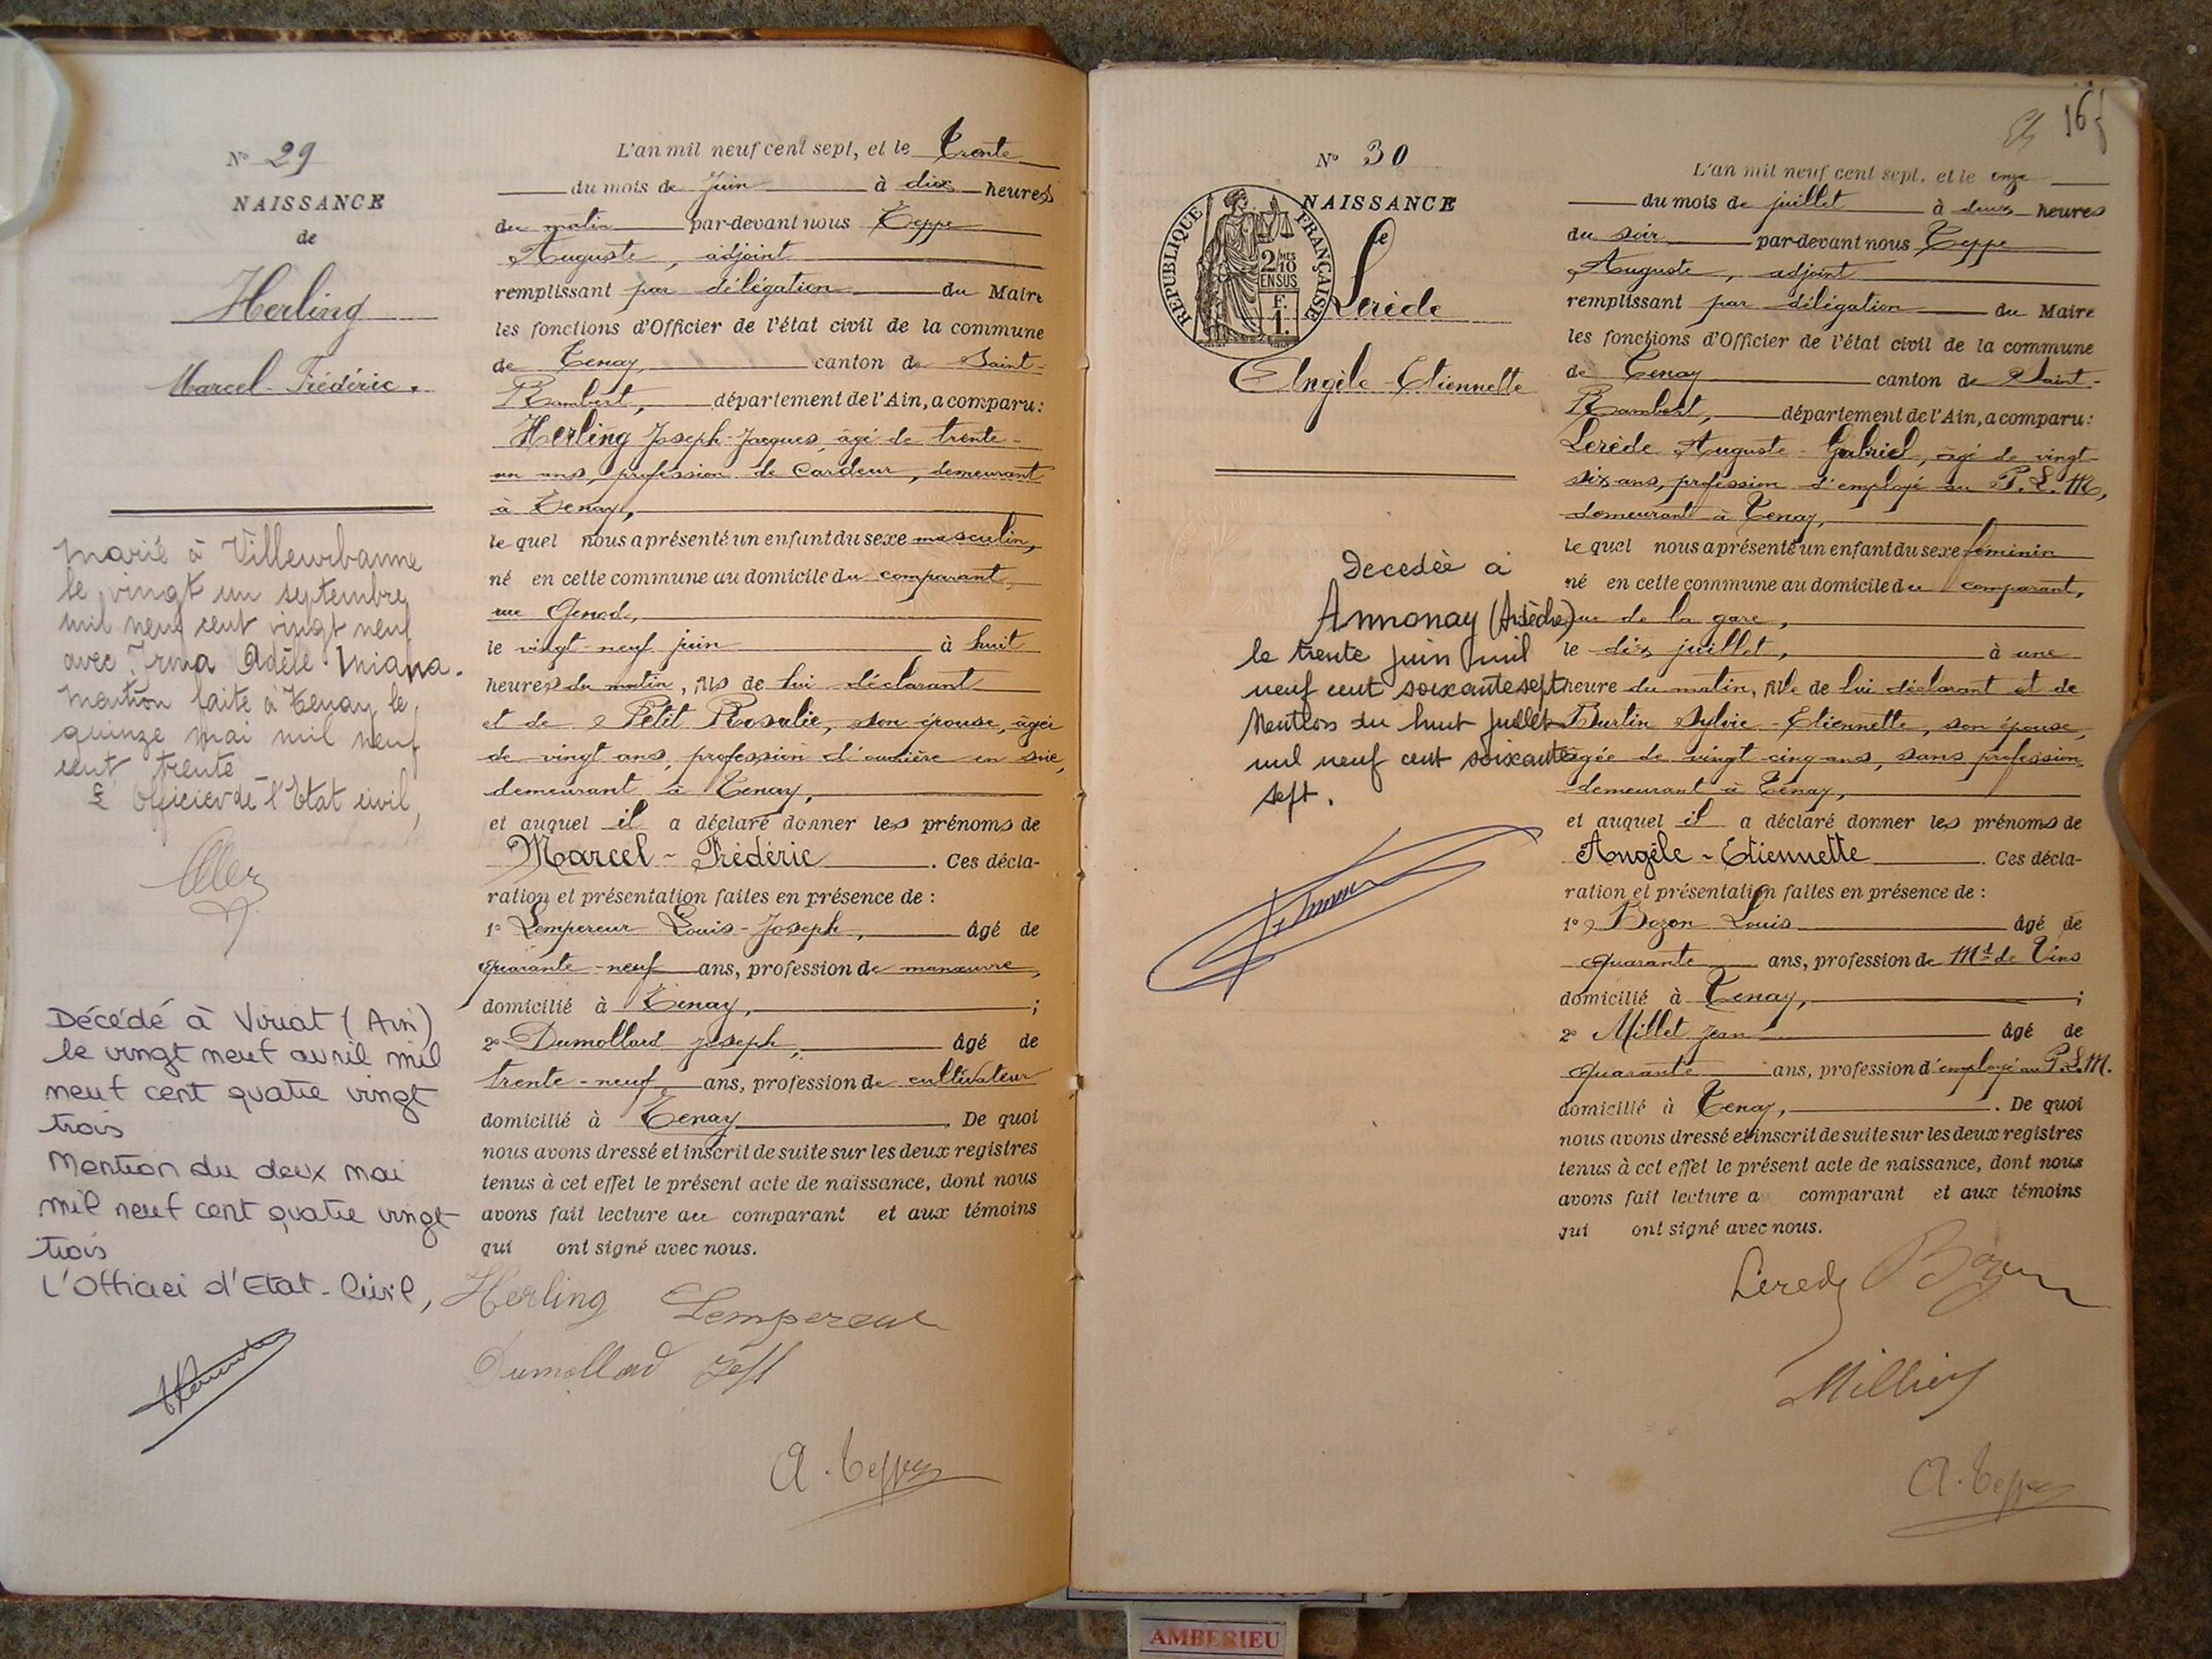 N° 29
NAISSANCE
de
Herling
Marcel-Frédéric.
Marié à Villeurbanne
le vingt un septembre
mil neuf cent vingt neuf
avec Irma Adèle
Mention faite à Tenay le
quinze mai mil neuf
cent trente
L'Officier de l'Etat civil,
Décédé à Viriat (Ain)
le vingt neuf avril mil
neuf cent quatre vingt
trois
Mention du deux mai
mil neuf cent quatre vingt
trois
L'Officier d'Etat-Civil,
L'an mil neuf cent sept, et le trente
du mois de Juin à dix heures
du matin par-devant nous Teppe
Auguste, adjoint
remplissant par délégation du Maire
les fonctions d'Officier de l'état civil de la commune
de Tenay, canton de Saint-
Rambert, département de l'Ain, a comparu:
Herling Joseph-Jacques, âgé de trente-
un ans, profession de Cardeur, demeurant
à Tenay,
lequel nous a présenté un enfant du sexe masculin,
né en cette commune au domicile du comparant,
rue Genod,
le vingt-neuf juin à huit
heures du matin, fils de lui déclarant
et de Petit Rosalie, son épouse, âgée
de vingt ans, profession d'ouvrière en soie,
demeurant à Tenay,
et auquel il a déclaré donner les prénoms de
Marcel-Frédéric. Ces décla-
ration et présentation faites en présence de :
1° Lempereur Louis-Joseph, âgé de
quarante-neuf ans, profession de manœuvre,
domicilié à Tenay, ;
2° Dumollard Joseph, âgé de
trente-neuf, ans, profession de cultivateur
domicilié à Tenay. De quoi
nous avons dressé et inscrit de suite sur les deux registres
tenus à cet effet le présent acte de naissance, dont nous
avons fait lecture au comparant et aux témoins
qui ont signé avec nous.
Herling Lempereur
Dumollard
A. Teppe
16
N° 30
NAISSANCE
RÉPUBLIQUE FRANÇAISE
2/10MES
EN SUS
F.
1.
de
Lerède
Angèle-Etiennette
Decedée à
Annonay (Ardèche)
le trente juin mil
neuf cent soixante sept
Mention du huit juillet
mil neuf cent soixante
sept.
L'an mil neuf cent sept, et le onze
du mois de juillet à deux heures
du soir par-devant nous Teppe
Auguste, adjoint
remplissant par délégation du Maire
les fonctions d'Officier de l'état civil de la commune
de Tenay canton de Saint-
Rambert, département de l'Ain, a comparu:
Lerède Auguste-Gabriel, âgé de vingt-
six ans, profession d'employé au P.L.M,
demeurant à Tenay,
lequel nous a présenté un enfant du sexe féminin
né en cette commune au domicile du comparant,
rue de la gare,
le dix juillet, à une
heure du matin, fille de lui déclarant et de
Burtin Sylvie-Etiennette, son épouse,
âgée de vingt-cinq ans, sans profession
demeurant à Tenay,
et auquel il a déclaré donner les prénoms de
Angèle-Etiennette. Ces décla-
ration et présentation faites en présence de :
1° Bozon Louis âgé de
quarante ans, profession de Md de Vins
domicilié à Tenay, ;
2° Millet Jean âgé de
quarante ans, profession d'employé au P.L.M.
domicilié à Tenay, . De quoi
nous avons dressé et inscrit de suite sur les deux registres
tenus à cet effet le présent acte de naissance, dont nous
avons fait lecture a comparant et aux témoins
qui ont signé avec nous.
Lerede Bozon
A. Teppe
AMBERIEU